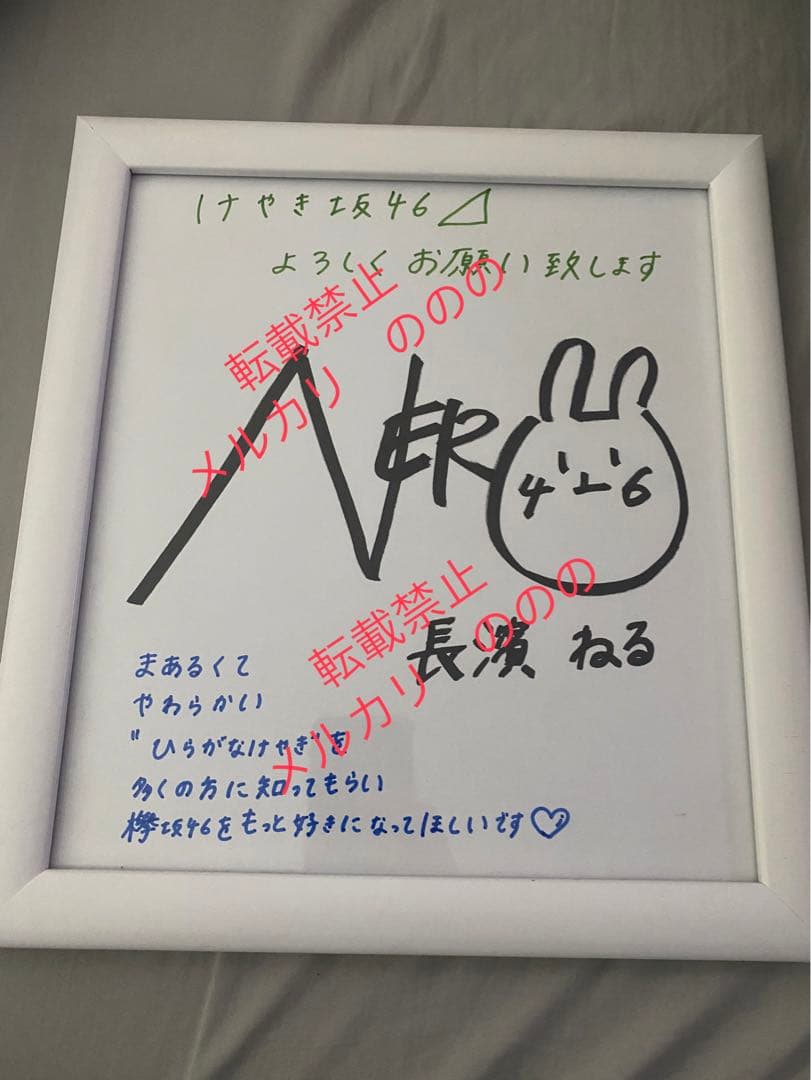 けやき坂46
よろしくお願い致します
転載禁止
メルカリ ののの
NERU
4 6
長濱 ねる
転載禁止
メルカリ ののの
まあるくて
やわらかい
"ひらがなけやき"を
多くの方に知ってもらい
欅坂46をもっと好きになってほしいです♡